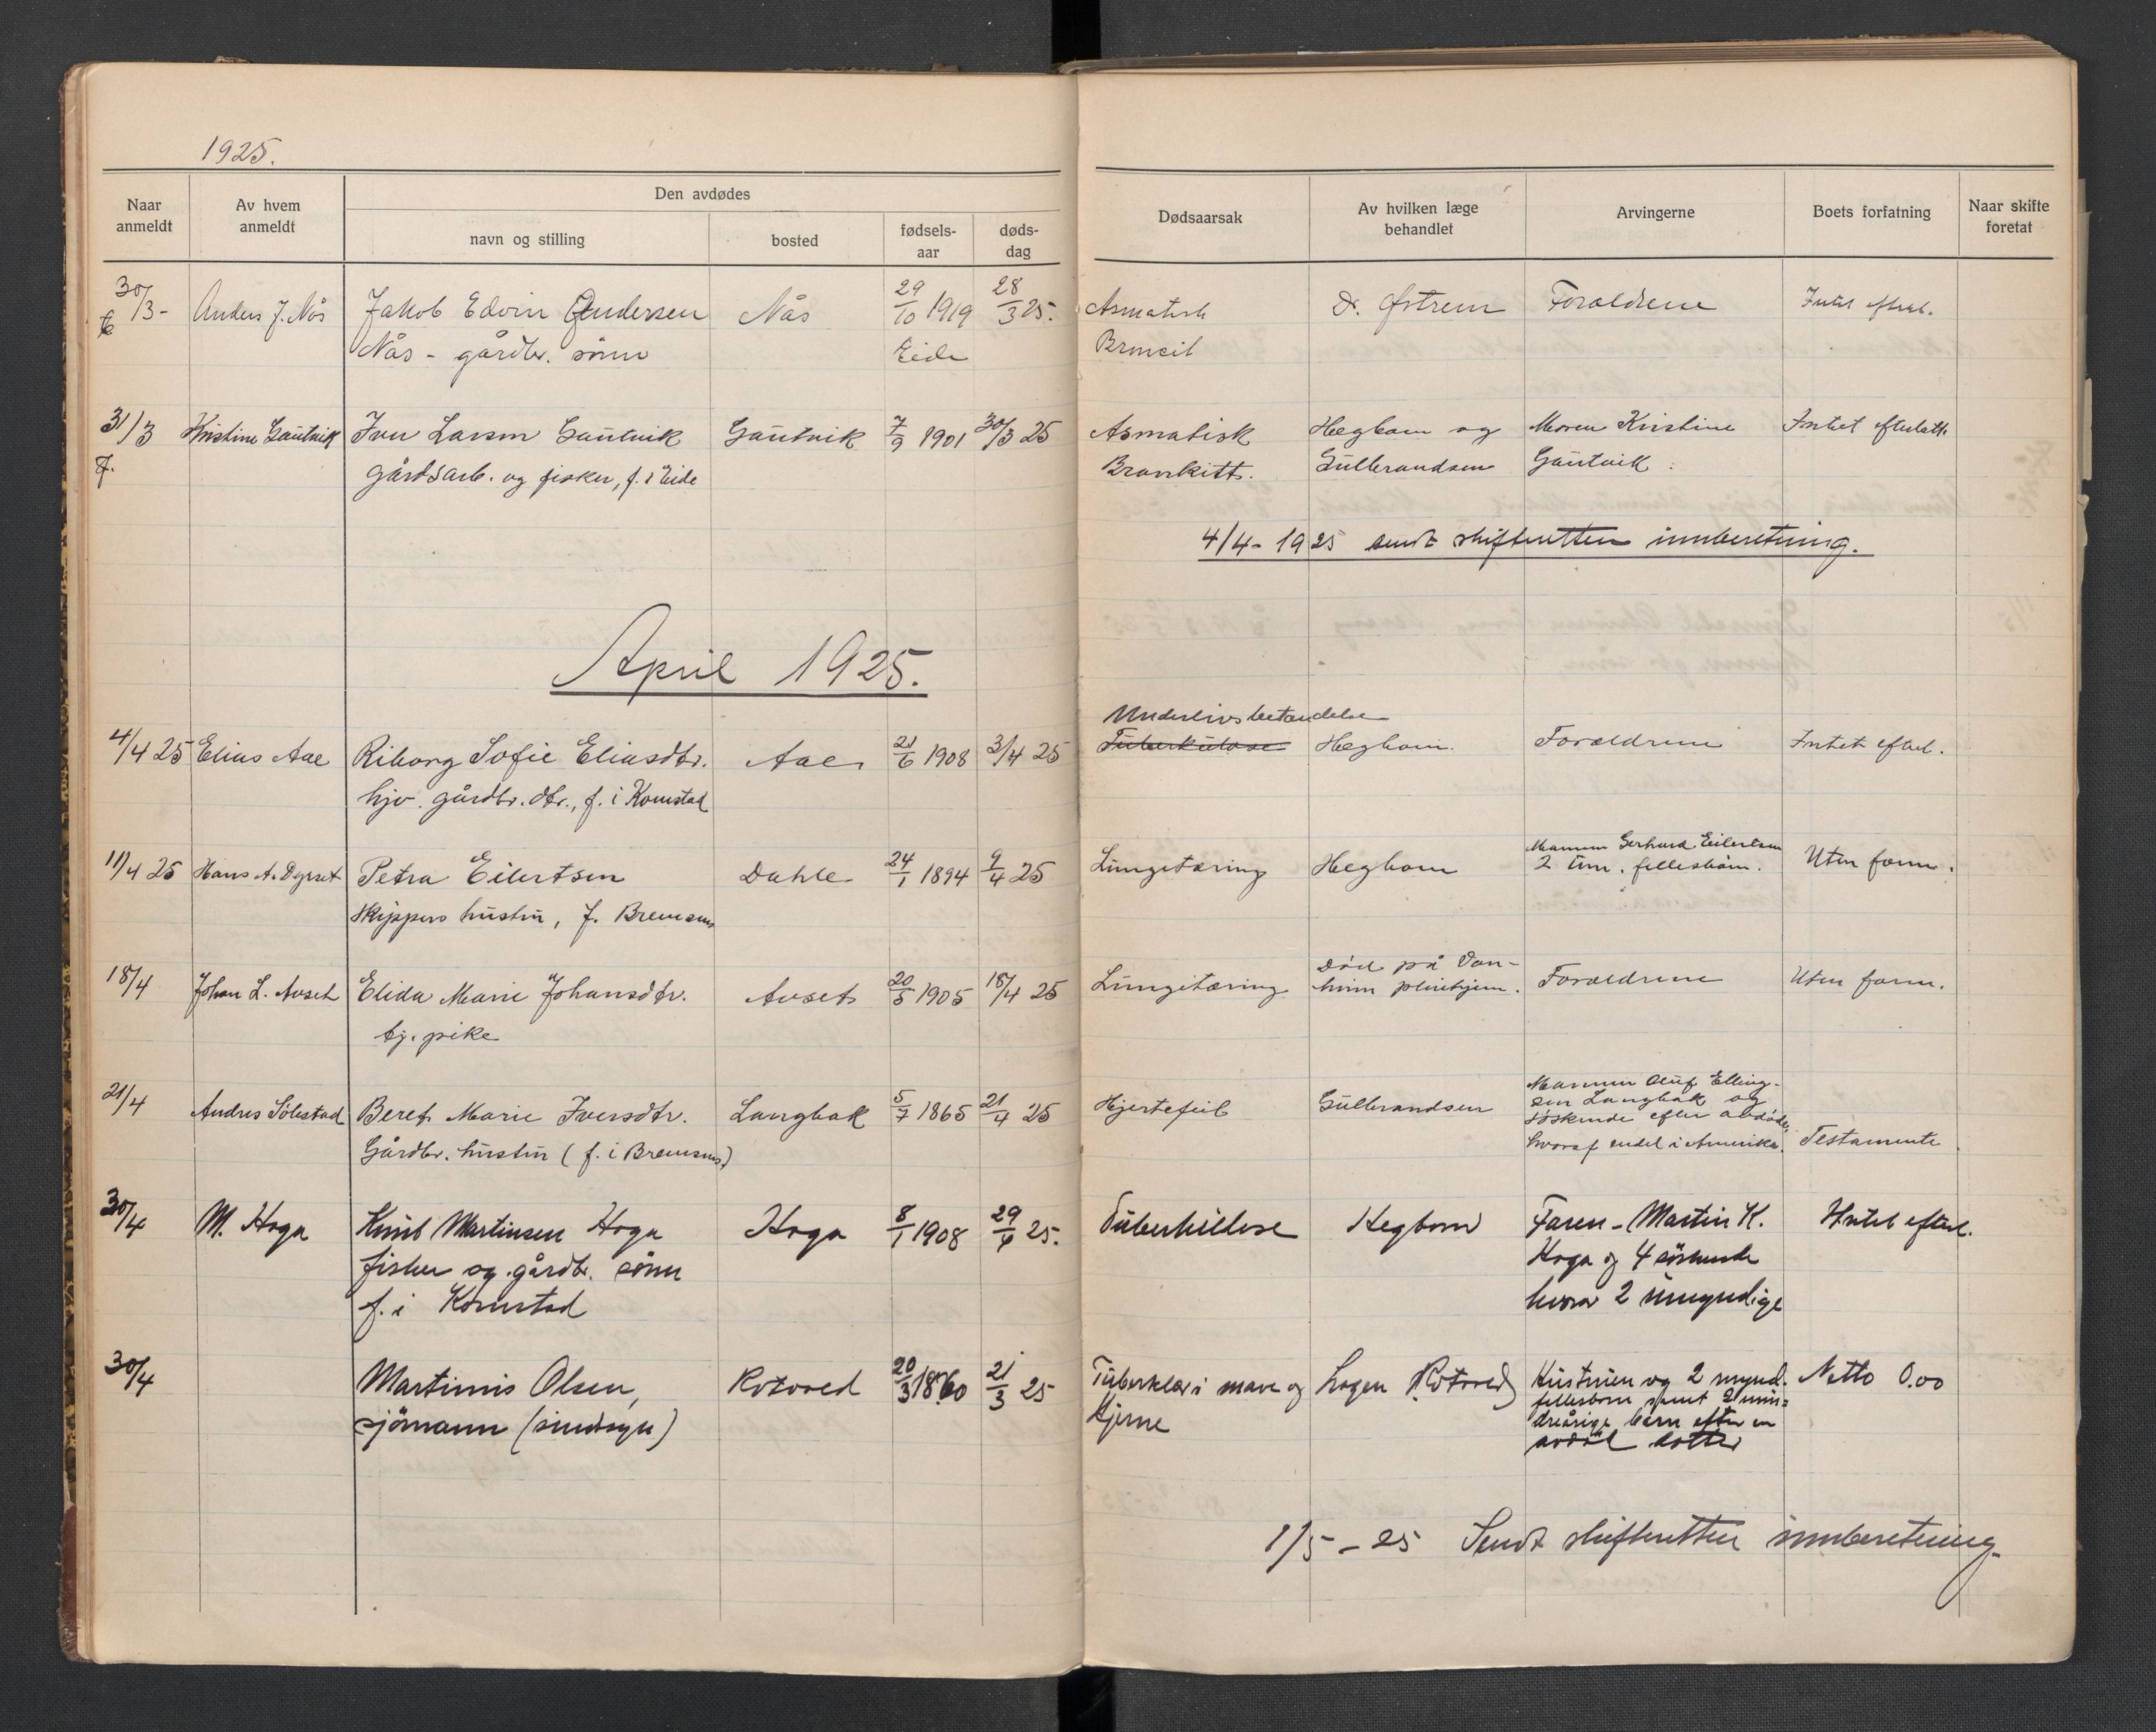 1925.
Naar anmeldt
Av hvem anmeldt
Den avdødes
navn og stilling
bosted
fødsels-aar
døds-dag
Dødsaarsak
Av hvilken læge behandlet
Arvingerne
Boets forfatning
Naar skifte foretat
30/3 - Anders J. Nås Jakob Edvin Andersen Nås 29/10 1919 28/3 25. Asmatisk D. Østrem Forældrene Intet efterl.
6 Nås - gårdbr. sønn Eide Broncit
31/3 Kristine Gautvik Iver Larsen Gautvik Gautvik 7/9 1901 30/3 25 Asmatisk Hegbom og Moren Kristine Intet efterlatt.
7. gårdsarb. og fisker, f. i Eide Bronkitt. Gulbrandsen Gautvik.
4/4 - 1925 sendt skifteretten innberetning.
April 1925.
Underlivsbetændelse
4/4 25 Elias Aae Riborg Sofie Eliasdtr. Aae 21/6 1908 3/4 25 Tuberkulose Hegbom. Forældrene Intet efterl.
hjv. gårdbr. dtr., f. i Kornstad
11/4 25 Hans A. Dyrset Petra Eilertsen Dahle 24/1 1894 9/4 25 Lungetæring Hegbom Mannen Gerhard Eilertsen
2 um. fellesbarn. Uten form.
Skippers hustru, f. Bremsnes
18/4 Johan L. Avset Elida Marie Johansdtr. Avset 20/5 1905 18/4 25 Lungetæring Død på
pleiehjem. Forældrene Uten form.
tj. pike
21/4 Andres Sølestad Beret Marie Iversdtr. Langbak 5/7 1865 21/4 25 Hjertefeil Gulbrandsen Mannen Oluf Elling-
sen Langbak og
søskende efter avdøde,
hvoraf endel i Amerika. Testamente
Gårdbr. hustru (f. i Bremsnes)
30/4 M. Hoga Knut Martinsen Hoga Hoga 8/1 1908 29/4 25. Tuberkulose Hegbom Faren - Martin K. Intet efterl.
fisker og gårdbr. sønn Hoga og 4 søskende
f. i Kornstad hvorav 2 umyndige
30/4 Martinus Olsen, Rotvoll 20/3 1860 21/3 25 Tuberklor i mave og Lægen Rotvoll Hustruen og 2 mynd. Netto 0.00
sjømann (sindssyk) hjerne fellesbarn samt 2 min-
dreårige barn efter en
avdød datter
1/5 - 25 Sendt skifteretten innberetning.